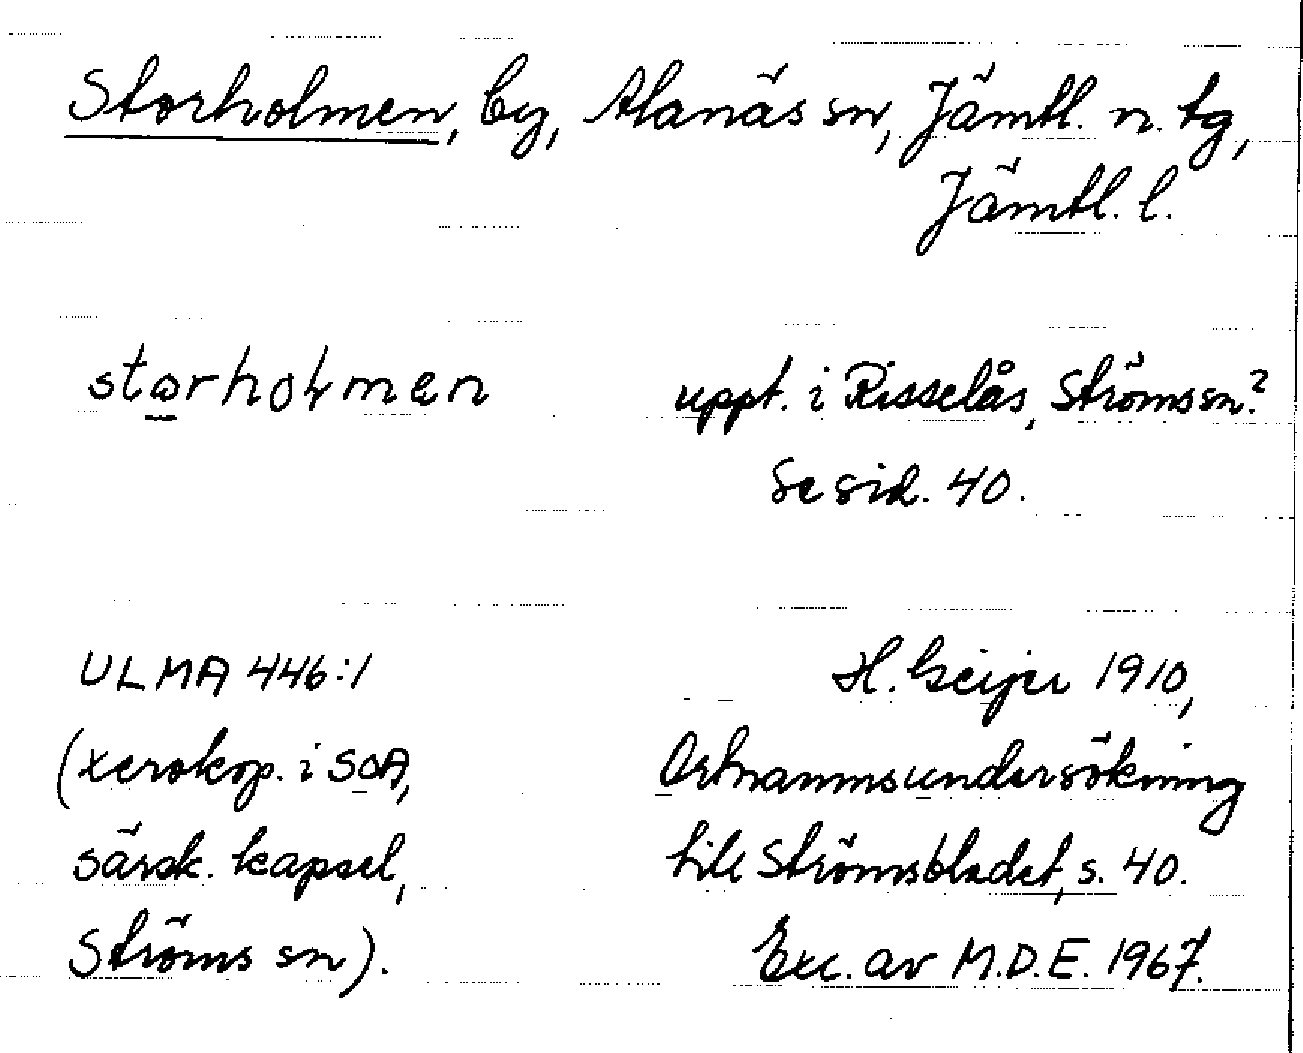 Storholmen, by, Alanäs sn, Jämtl. n. tg,
Jämtl. l.
storholmen uppt. i Risselås, Ströms sn?
Se sid. 40.
ULMA 446:1 H. Geijer 1910,
(xerokop. i SOA, Ortnamnsundersökning
särsk. kapsel, till Strömsbladet, s. 40.
Ströms sn). Exc. av M.D.E. 1967.